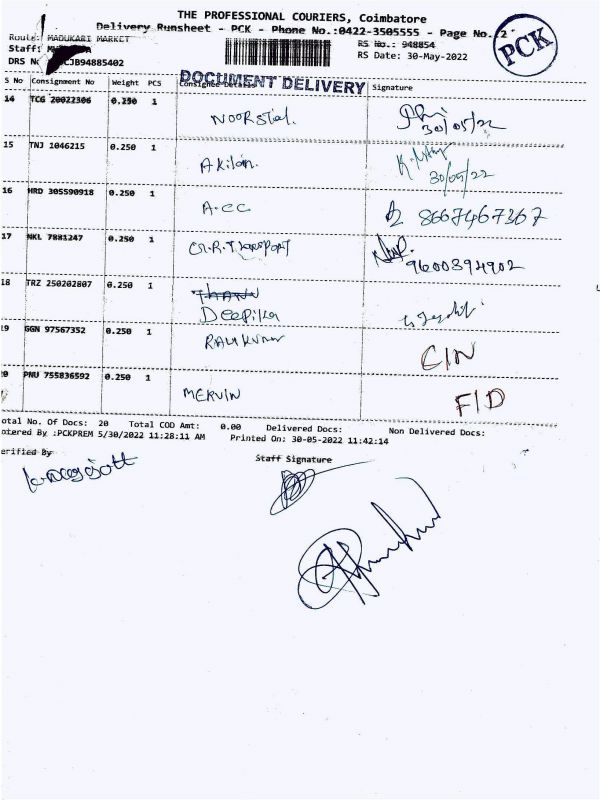 THE PROFESSIONAL COURIERS, Coimbatore
Delivery Runsheet - PCK - Phone No.:0422-3505555 - Page No. 2
Route: MADUKARI MARKET RS No.: 948854
Staff: RS Date: 30-May-2022
PCK
DRS No JB94885402
DOCUMENT DELIVERY
S No Consignment No Weight PCS Consignee Details Signature
14 TCG 20022306 0.250 1 30/05/22
15 TNJ 1046215 0.250 1 Akilan. 30/05/22
16 HRD 305590918 0.250 1 A.CC 8667467367
17 NKL 7881247 0.250 1 9600394902
18 TRZ 250202807 0.250 1 Deepika
19 GGN 97567352 0.250 1 C/N
PNU 755836592 0.250 1 MERVIN F/D
otal No. Of Docs: 20 Total COD Amt: 0.00 Delivered Docs: Non Delivered Docs:
ntered By :PCKPREM 5/30/2022 11:28:11 AM Printed On: 30-05-2022 11:42:14
erified By Staff Signature